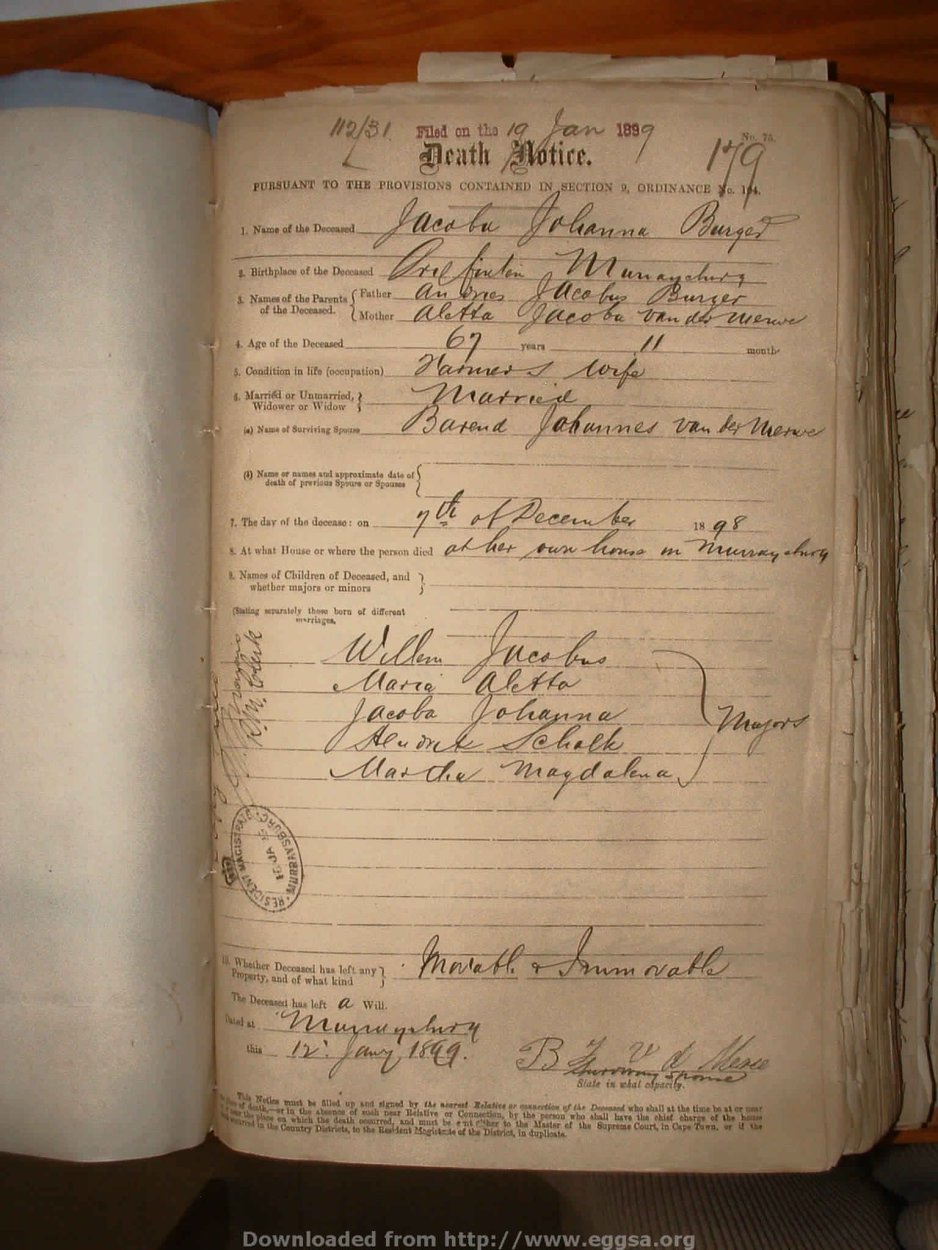 112/31 Filed on the 19 Jan 1899
No. 75.
Death Notice. 179
PURSUANT TO THE PROVISIONS CONTAINED IN SECTION 9, ORDINANCE No. 104.
1. Name of the Deceased Jacoba Johanna Burger
2. Birthplace of the Deceased Murraysburg
3. Names of the Parents of the Deceased. { Father Andries Jacobus Burger
Mother Aletta Jacoba van der Merwe
4. Age of the Deceased 67 years 11 month
5. Condition in life (occupation) Farmers wife
6. Married or Unmarried, Widower or Widow } Married
(a) Name of Surviving Spouse Barend Johannes van der Merwe
(b) Name or names and approximate date of death of previous Spouse or Spouses {
7. The day of the decease: on 7th of December 1898
8. At what House or where the person died at her own house in Murraysburg
9. Names of Children of Deceased, and whether majors or minors }
(Stating separately those born of different marriages,
Willem Jacobus
Maria Aletta
Jacoba Johanna } Majors
Hendrik Schalk
Martha Magdalena
RESIDENT MAGISTRATE MURRAYSBURG
10. Whether Deceased has left any Property, and of what kind } Movable & Immovable
The Deceased has left a Will.
Dated at Murraysburg
this 12 Jany 1899. B J v d Merwe
Surviving Spouse
State in what capacity.
This Notice must be filled up and signed by the nearest Relative or connection of the Deceased who shall at the time be at or near
place of death,—or in the absence of such near Relative or Connection, by the person who shall have the chief charge of the house
the place on which the death occurred, and must be sent either to the Master of the Supreme Court, in Cape Town, or if the
occurred in the Country Districts, to the Resident Magistrate of the District, in duplicate.
Downloaded from http://www.eggsa.org